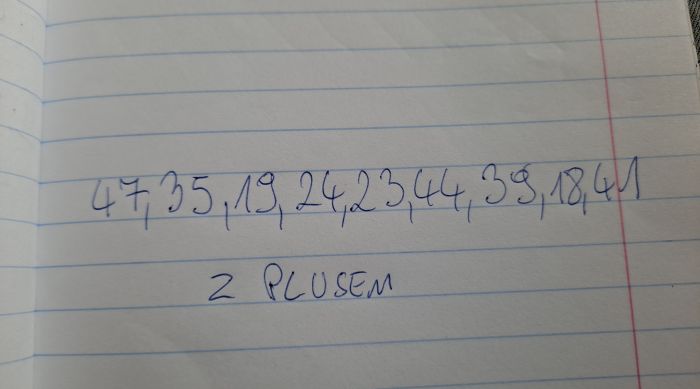 47,35,19,24,23,44,39,18,41
Z PLUSEM